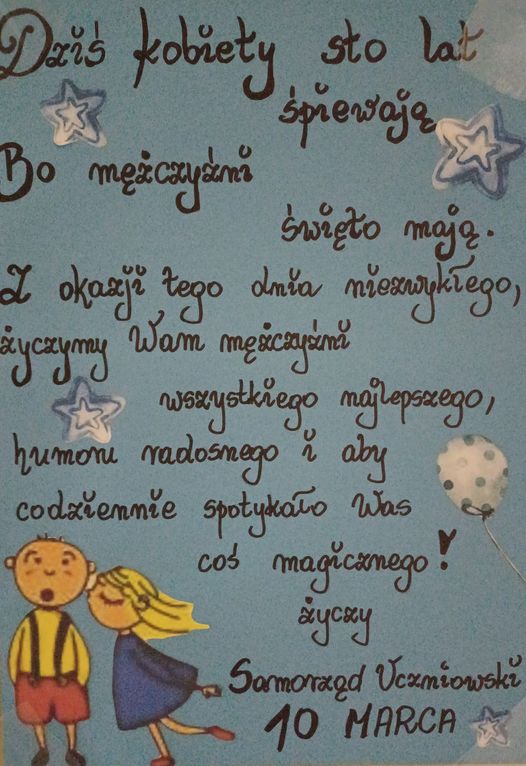 Dziś kobiety sto lat
śpiewają
Bo mężczyźni
święto mają.
Z okazji tego dnia niezwykłego,
życzymy Wam mężczyźni
wszystkiego najlepszego,
humoru radosnego i aby
codziennie spotykało Was
coś magicznego!
życzy
Samorząd Uczniowski
10 MARCA